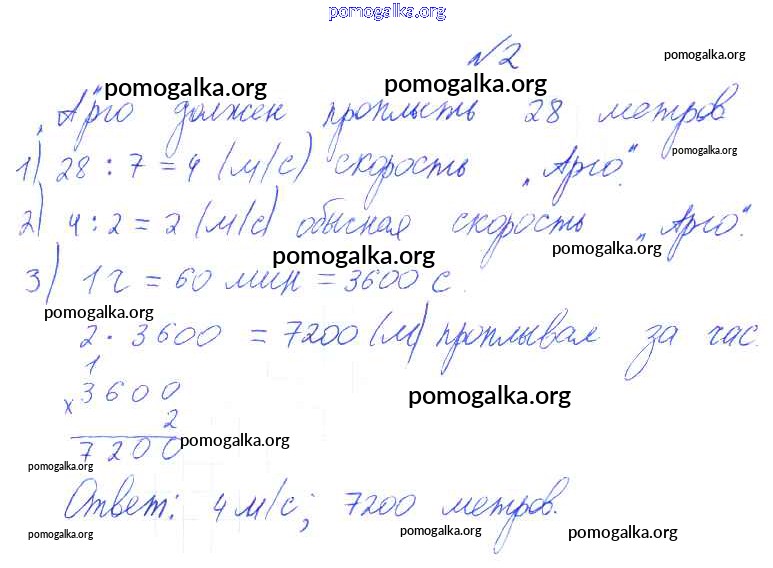 pomogalka.org
№2
pomogalka.org
pomogalka.org
pomogalka.org
"Арго должен проплыть 28 метров
pomogalka.org
1) 28 : 7 = 4 (м/с) скорость „Арго".
2) 4 : 2 = 2 (м/с) обычная скорость „Арго".
pomogalka.org
pomogalka.org
3) 1 ч = 60 мин = 3600 с.
pomogalka.org
2 · 3600 = 7200 (м) проплывал за час.
1
3600
pomogalka.org
x
2
7200
pomogalka.org
pomogalka.org
Ответ: 4 м/с; 7200 метров.
pomogalka.org
pomogalka.org
pomogalka.org